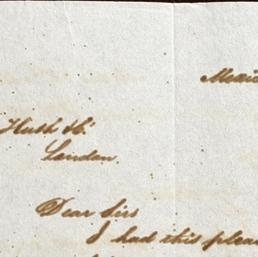 Mexic
Huth &
London.
Dear Sirs
I had this plea